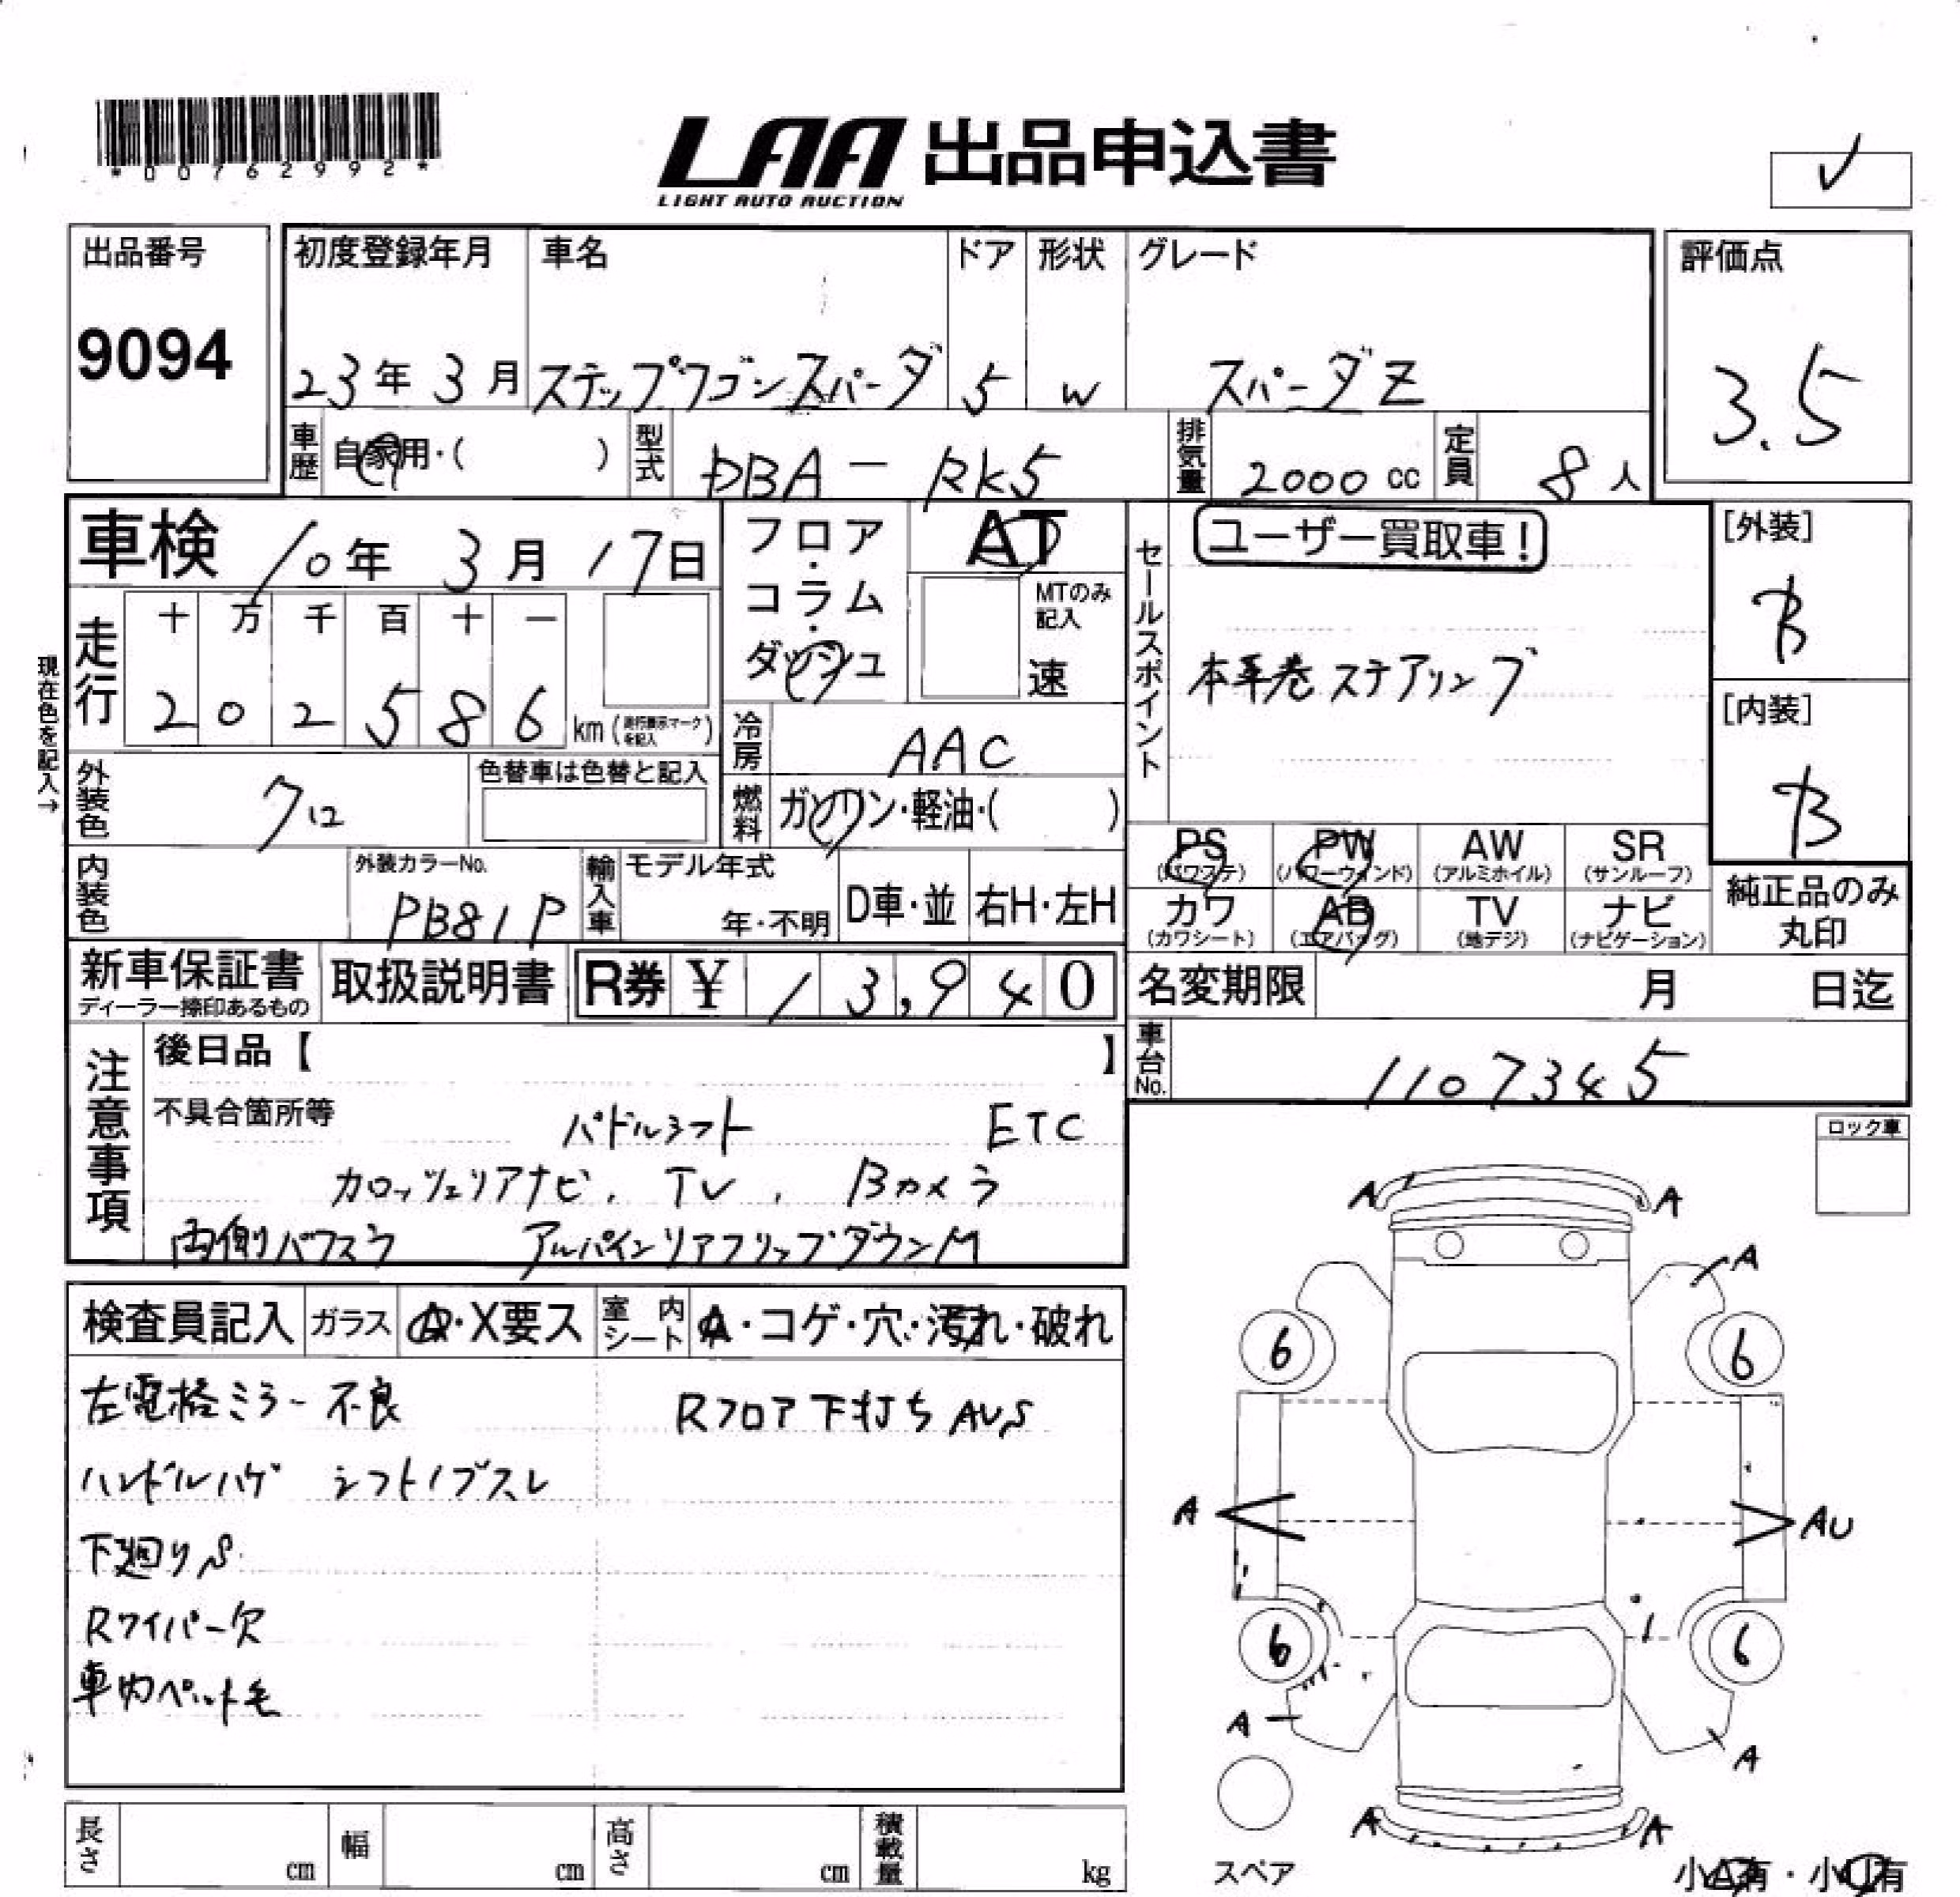 *00762992*
LAA 出品申込書
LIGHT AUTO AUCTION
出品番号
9094
初度登録年月 車名 ドア 形状 グレード
23年 3月 ステップワゴンスパーダ 5 W スパーダZ
評価点
3.5
車歴 自家用・( ) 型式 DBA-RK5 排気量 2000 cc 定員 8人
車検 10年 3月 17日
フロア・コラム・ダッシュ
AT
MTのみ記入
速
セールスポイント
ユーザー買取車!
本革巻ステアリング
[外装]
B
[内装]
B
現在色を記入→
走行
十 万 千 百 十 一
2 0 2 5 8 6 km (走行表示マークを記入)
冷房 AAC
外装色 クロ
色替車は色替と記入
燃料 ガソリン・軽油・( )
内装色
外装カラーNo.
PB81P
輸入車 モデル年式
年・不明 D車・並 右H・左H
PS (パワステ) PW (パワーウィンド) AW (アルミホイル) SR (サンルーフ)
カワ (カワシート) AB (エアバッグ) TV (地デジ) ナビ (ナビゲーション)
純正品のみ丸印
新車保証書
ディーラー捺印あるもの
取扱説明書
R券 ¥ 13,940
名変期限 月 日迄
車台No. 1107345
注意事項
後日品【 】
不具合箇所等 パドルシフト ETC
カロッツェリアナビ、TV、Bカメラ
両側パワスラ アルパインリアフリップダウンM
ロック車
検査員記入 ガラス A・X要ス 室内シート A・コゲ・穴・汚れ・破れ
左電格ミラー不良 Rフロア下打ちAUS
ハンドルハゲ シフトノブスレ
下廻りS
Rワイパー欠
車内ペット毛
A A
A
6 6
A AU
6 6
A A
A A
スペア
小A有・小U有
長さ cm 幅 cm 高さ cm 積載量 kg